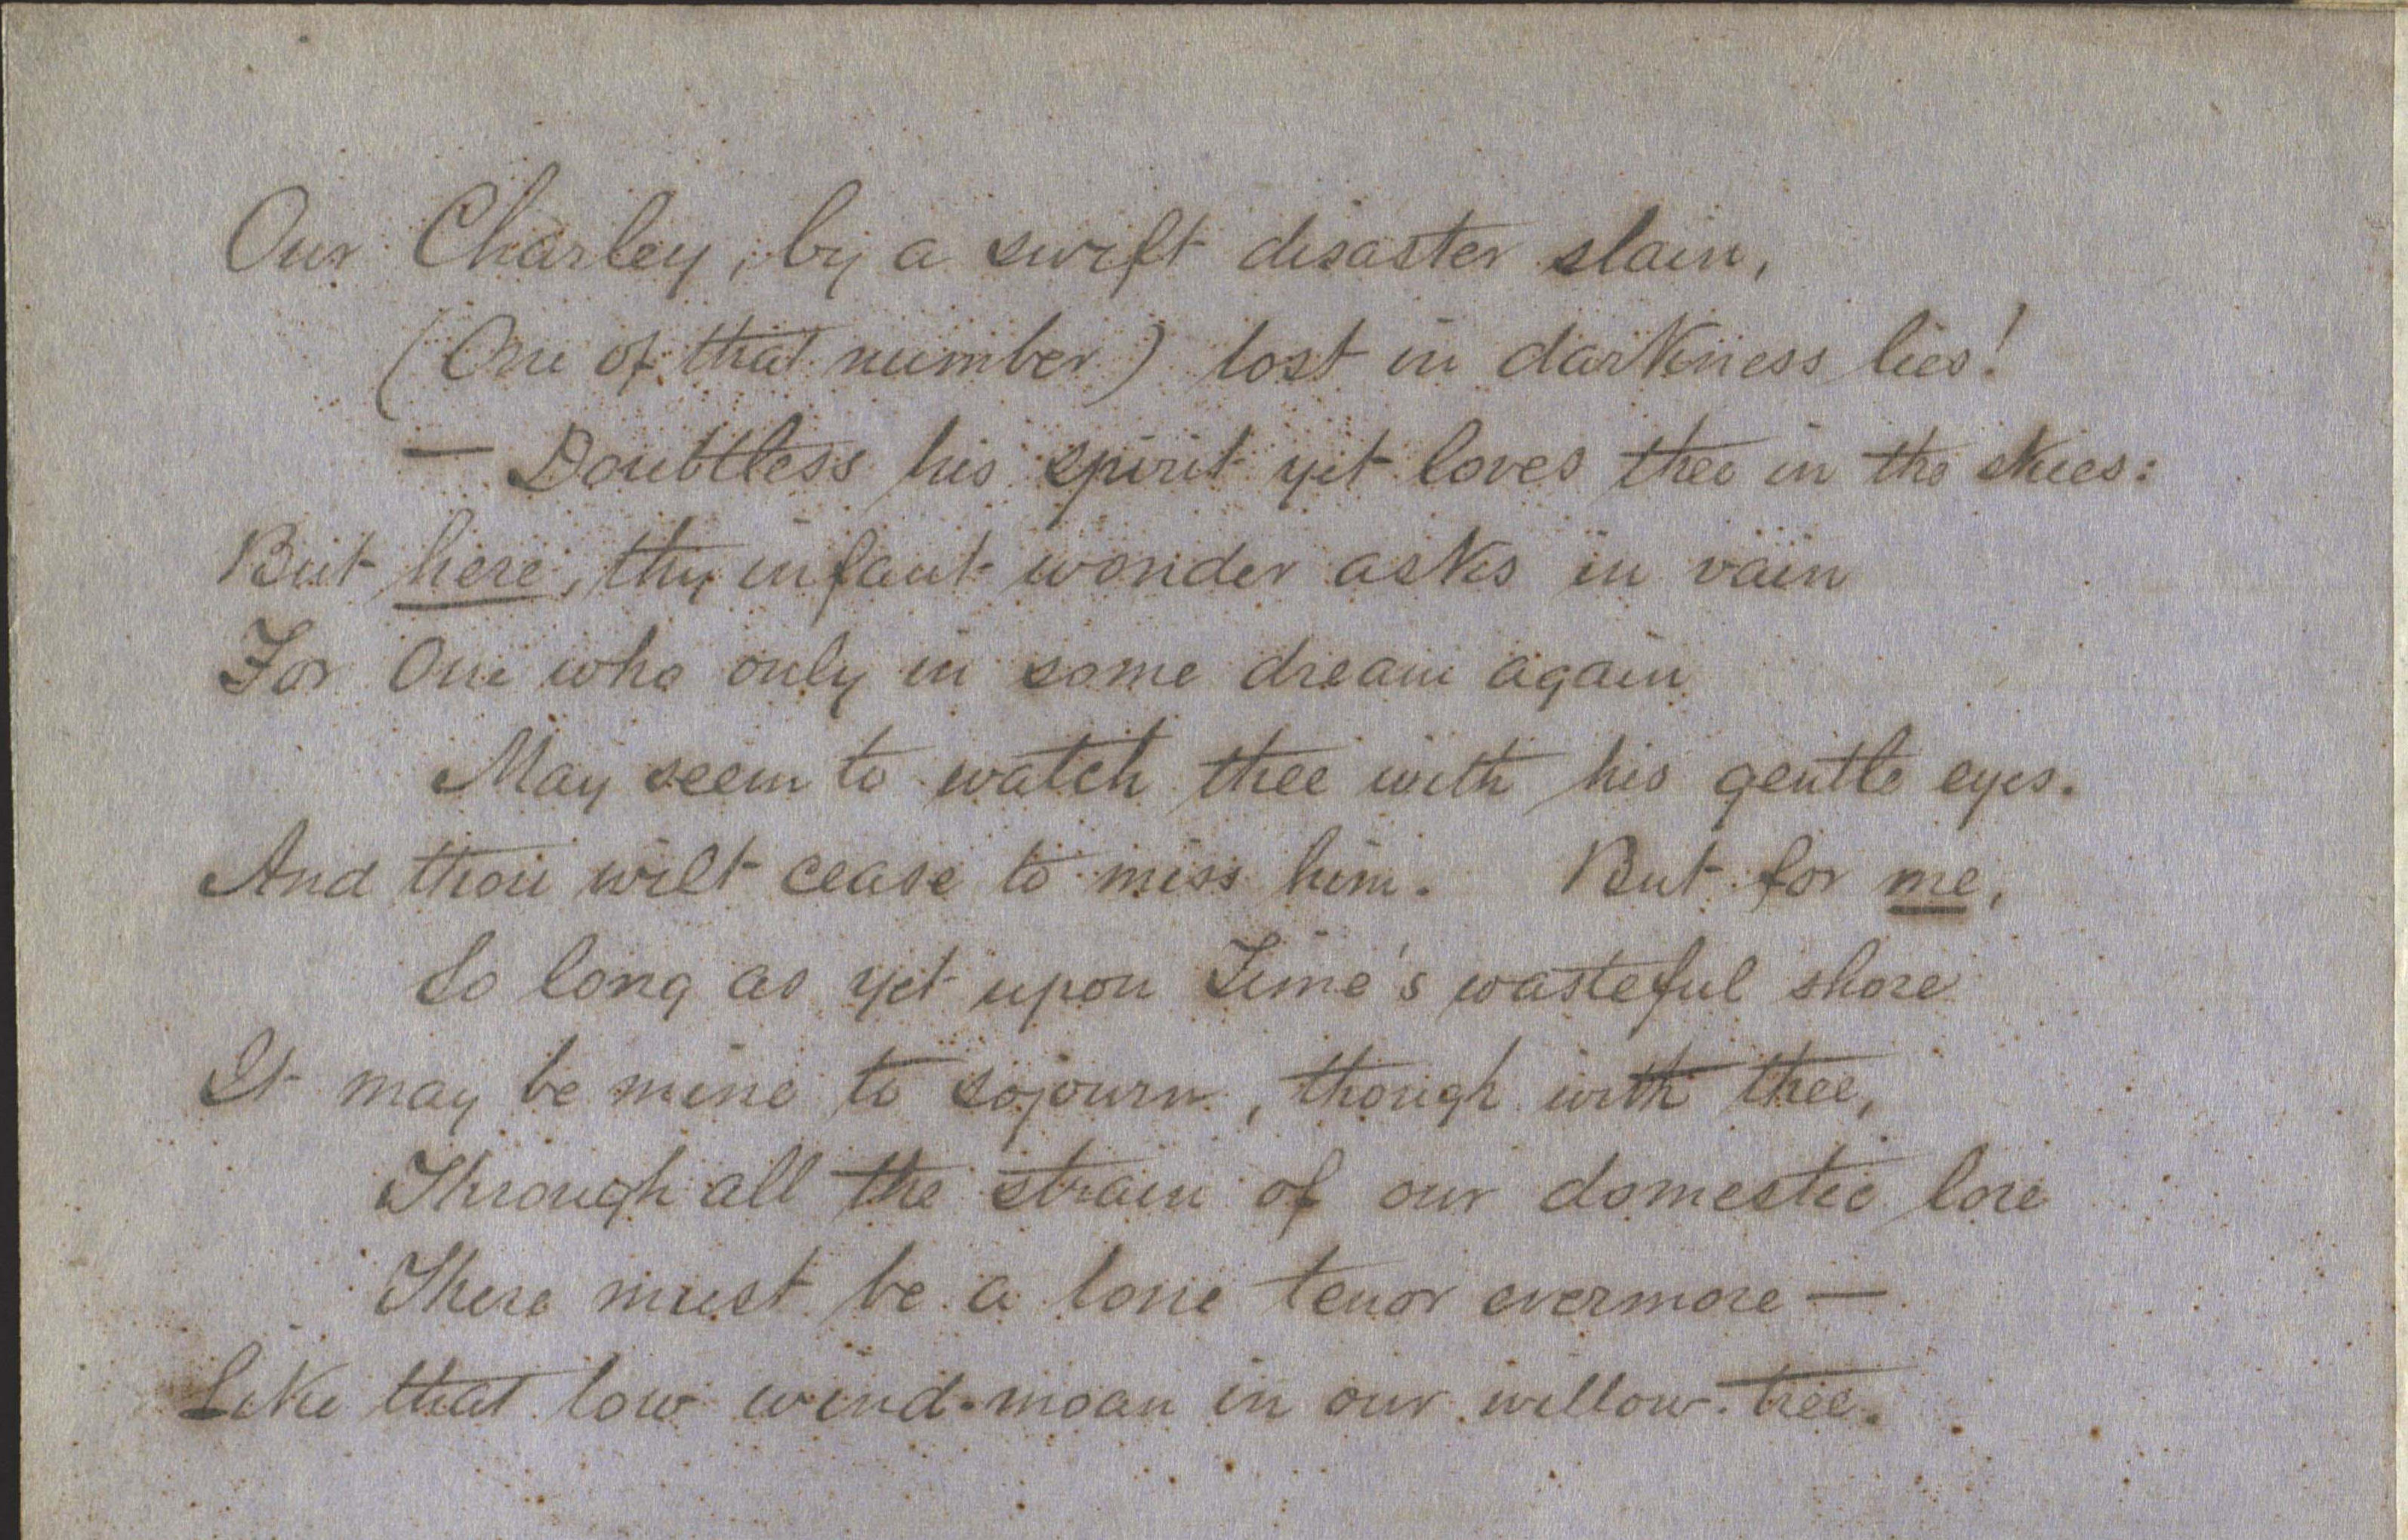 Our Charley, by a swift disaster slain,
(One of that number) lost in darkness lies!
— Doubtless his spirit yet loves thee in the skies:
But here, thy infant wonder asks in vain
For One who only in some dream again
May seem to watch thee with his gentle eyes.
And thou wilt cease to miss him. But for me,
So long as yet upon Time's wasteful shore
It may be mine to sojourn, though with thee,
Through all the strain of our domestic lore
There must be a lone tenor evermore —
Like that low wind-moan in our willow-tree.